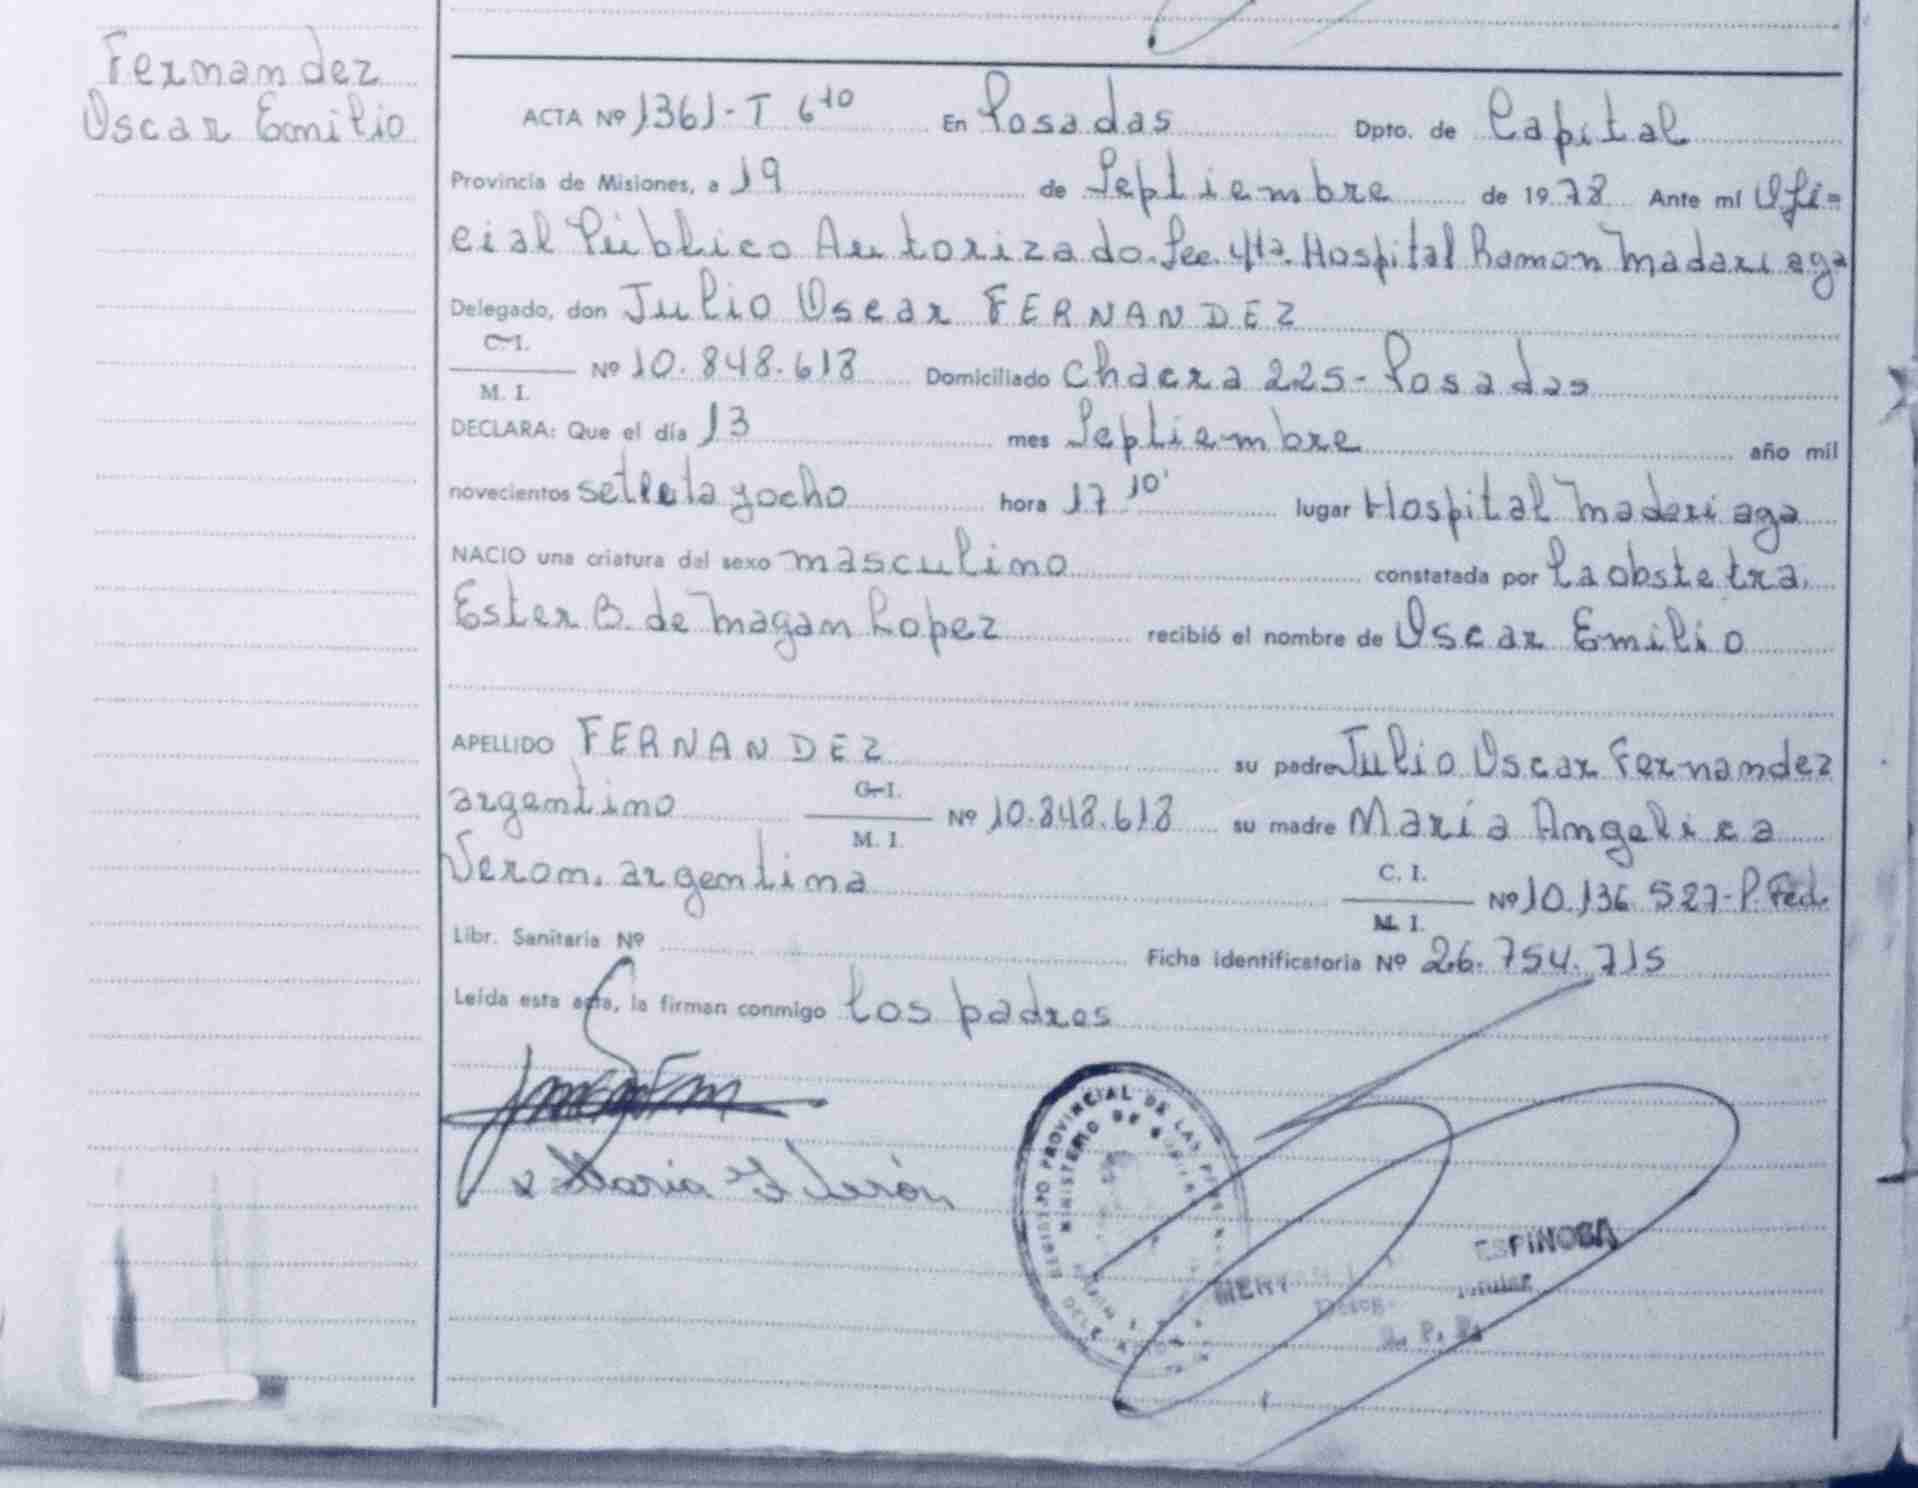 Fernandez
Oscar Emilio
ACTA Nº 1361-T 6to En Posadas Dpto. de Capital
Provincia de Misiones, a 19 de Septiembre de 1978 Ante mí Ofi=
cial Público Autorizado. Sec. 4ta. Hospital Ramon Madariaga
Delegado, don Julio Oscar FERNANDEZ
C.I.
M. I.
Nº 10.848.618 Domiciliado Chacra 225- Posadas
DECLARA: Que el día 13 mes Septiembre año mil
novecientos setenta y ocho hora 17 10' lugar Hospital Madariaga
NACIO una criatura del sexo masculino constatada por la obstetra.
Ester B. de Magan Lopez recibió el nombre de Oscar Emilio
APELLIDO FERNANDEZ su padre Julio Oscar Fernandez
argentino C.I. M. I. Nº 10.848.618 su madre María Angelica
Veron. argentina C. I. M. I. Nº 10.136.527-P. Fed.
Libr. Sanitaria Nº Ficha identificatoria Nº 26.754.715
Leída esta acta, la firman conmigo los padres
Maria Verón
REGISTRO PROVINCIAL DE LAS PERSONAS
MINISTERIO DE GOBIERNO
MERY ESPINOSA